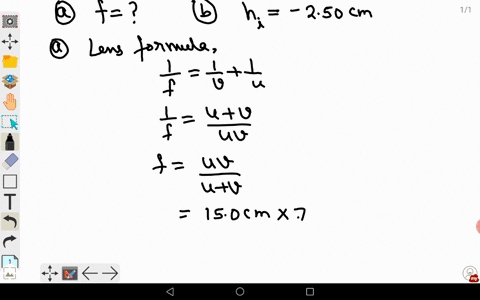 1/1
ⓐ f = ? ⓑ hᵢ = -2.50 cm
ⓐ Lens formula,
1/f = 1/v + 1/u
1/f = u+v/uv
f = uv/u+v
= 15.0 cm × 7
T
1